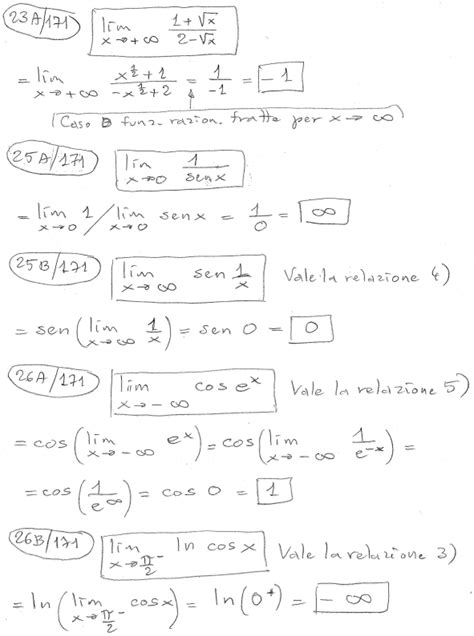 23A/171 lim x→+∞ 1+√x / 2-√x
= lim x→+∞ x^½+1 / -x^½+2 = 1/-1 = -1
Caso funz. razion. fratte per x→∞
25A/171 lim x→0 1/senx
= lim x→0 1 / lim x→0 senx = 1/0 = ∞
25B/171 lim x→∞ sen 1/x Vale la relazione 4)
= sen (lim x→∞ 1/x) = sen 0 = 0
26A/171 lim x→-∞ cos e^x Vale la relazione 5)
= cos (lim x→-∞ e^x) = cos (lim x→-∞ 1/e^-x) =
= cos (1/e^∞) = cos 0 = 1
26B/171 lim x→π/2⁻ ln cos x Vale la relazione 3)
= ln (lim x→π/2⁻ cosx) = ln (0⁺) = -∞